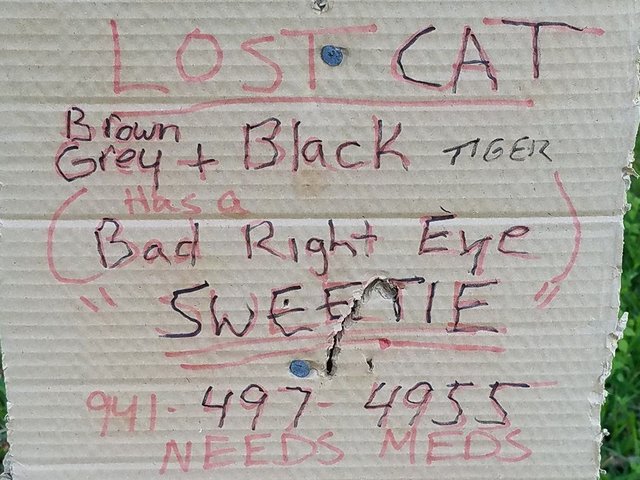 LOST CAT
Brown
Grey + Black TIGER
(Has a
Bad Right Eye)
"SWEETIE"
941-497-4955
NEEDS MEDS